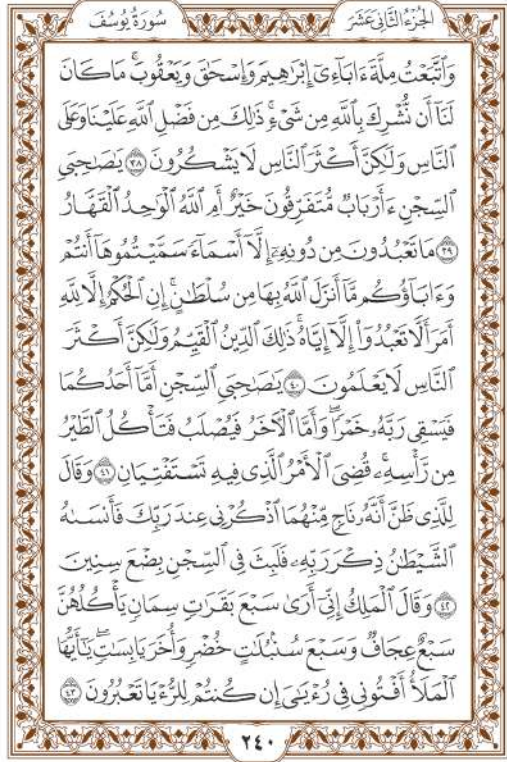 الجُزْءُ الثَّانِي عَشَرَ
سُورَةُ يُوسُفَ
وَٱتَّبَعْتُ مِلَّةَ ءَابَآءِىٓ إِبْرَٰهِيمَ وَإِسْحَٰقَ وَيَعْقُوبَۚ مَا كَانَ
لَنَآ أَن نُّشْرِكَ بِٱللَّهِ مِن شَىْءٍۚ ذَٰلِكَ مِن فَضْلِ ٱللَّهِ عَلَيْنَا وَعَلَى
ٱلنَّاسِ وَلَٰكِنَّ أَكْثَرَ ٱلنَّاسِ لَا يَشْكُرُونَ ٣٨ يَٰصَىٰحِبَىِ
ٱلسِّجْنِ ءَأَرْبَابٌ مُّتَفَرِّقُونَ خَيْرٌ أَمِ ٱللَّهُ ٱلْوَٰحِدُ ٱلْقَهَّارُ
٣٩ مَا تَعْبُدُونَ مِن دُونِهِۦٓ إِلَّآ أَسْمَآءً سَمَّيْتُمُوهَآ أَنتُمْ
وَءَابَآؤُكُم مَّآ أَنزَلَ ٱللَّهُ بِهَا مِن سُلْطَٰنٍۚ إِنِ ٱلْحُكْمُ إِلَّا لِلَّهِ
أَمَرَ أَلَّا تَعْبُدُوٓا۟ إِلَّآ إِيَّاهُۚ ذَٰلِكَ ٱلدِّينُ ٱلْقَيِّمُ وَلَٰكِنَّ أَكْثَرَ
ٱلنَّاسِ لَا يَعْلَمُونَ ٤٠ يَٰصَىٰحِبَىِ ٱلسِّجْنِ أَمَّآ أَحَدُكُمَا
فَيَسْقِى رَبَّهُۥ خَمْرًاۖ وَأَمَّا ٱلْءَاخَرُ فَيُصْلَبُ فَتَأْكُلُ ٱلطَّيْرُ
مِن رَّأْسِهِۦۚ قُضِىَ ٱلْأَمْرُ ٱلَّذِى فِيهِ تَسْتَفْتِيَانِ ٤١ وَقَالَ
لِلَّذِى ظَنَّ أَنَّهُۥ نَاجٍ مِّنْهُمَا ٱذْكُرْنِى عِندَ رَبِّكَ فَأَنسَىٰهُ
ٱلشَّيْطَٰنُ ذِكْرَ رَبِّهِۦ فَلَبِثَ فِى ٱلسِّجْنِ بِضْعَ سِنِينَ
٤٢ وَقَالَ ٱلْمَلِكُ إِنِّىٓ أَرَىٰ سَبْعَ بَقَرَٰتٍ سِمَانٍ يَأْكُلُهُنَّ
سَبْعٌ عِجَافٌ وَسَبْعَ سُنۢبُلَٰتٍ خُضْرٍ وَأُخَرَ يَابِسَٰتٍۖ يَٰٓأَيُّهَا
ٱلْمَلَأُ أَفْتُونِى فِى رُءْيَٰىَ إِن كُنتُمْ لِلرُّءْيَا تَعْبُرُونَ ٤٣
٢٤٠